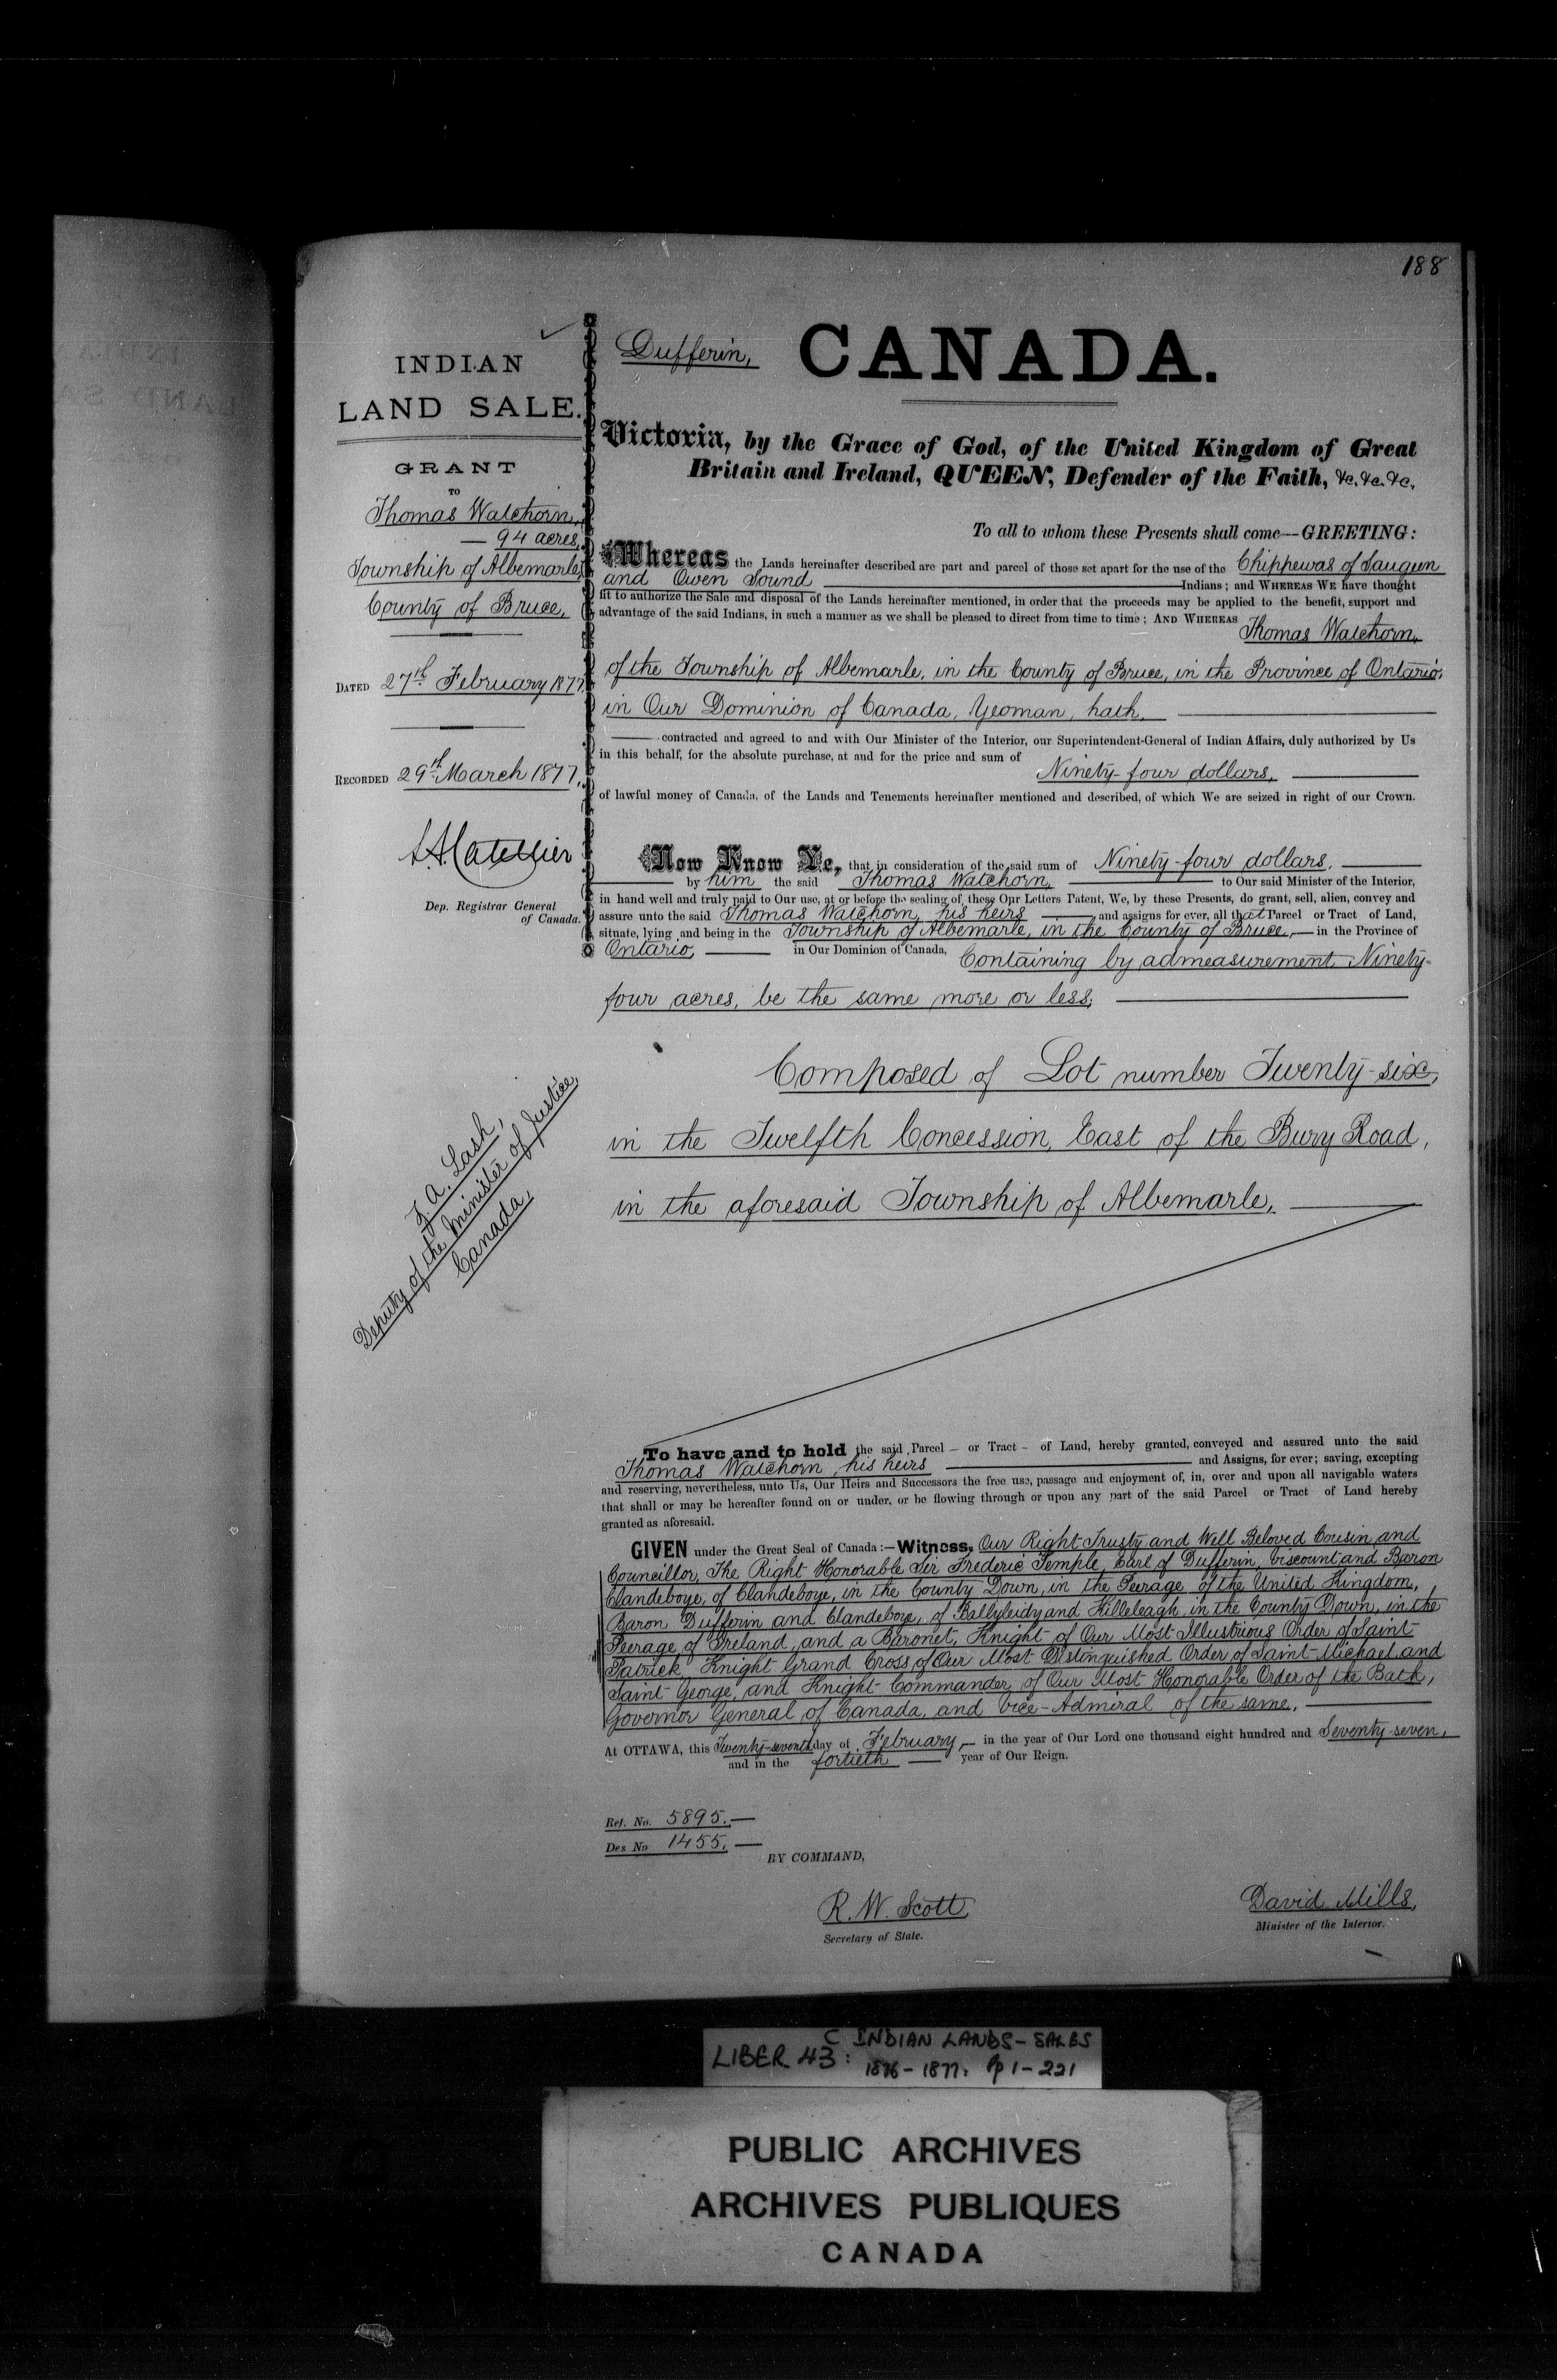 188
INDIAN
LAND SALE.
GRANT
TO
Thomas Watchorn,
94 acres,
Township of Albemarle,
County of Bruce,
DATED 27th February 1877,
RECORDED 29th March 1877,
Dep. Registrar General
of Canada.
Z. A. Lash,
Deputy of the Minister of Justice,
Canada,
Dufferin, CANADA.
Victoria, by the Grace of God, of the United Kingdom of Great
Britain and Ireland, QUEEN, Defender of the Faith, &c. &c. &c.
To all to whom these Presents shall come—GREETING:
Whereas the Lands hereinafter described are part and parcel of those set apart for the use of the Chippewas of Saugeen
and Owen Sound Indians; and WHEREAS WE have thought
fit to authorize the Sale and disposal of the Lands hereinafter mentioned, in order that the proceeds may be applied to the benefit, support and
advantage of the said Indians, in such a manner as we shall be pleased to direct from time to time; AND WHEREAS
Thomas Watchorn,
of the Township of Albemarle, in the County of Bruce, in the Province of Ontario,
in Our Dominion of Canada, Yeoman, hath
contracted and agreed to and with Our Minister of the Interior, our Superintendent-General of Indian Affairs, duly authorized by Us
in this behalf, for the absolute purchase, at and for the price and sum of
Ninety-four dollars,
of lawful money of Canada, of the Lands and Tenements hereinafter mentioned and described, of which We are seized in right of our Crown.
Now Know Ye, that in consideration of the said sum of Ninety-four dollars,
by him the said Thomas Watchorn, to Our said Minister of the Interior,
in hand well and truly paid to Our use, at or before the sealing of these Our Letters Patent, We, by these Presents, do grant, sell, alien, convey and
assure unto the said Thomas Watchorn, his heirs and assigns for ever, all that Parcel or Tract of Land,
situate, lying and being in the Township of Albemarle, in the County of Bruce, in the Province of
Ontario, in Our Dominion of Canada, Containing by admeasurement Ninety-
four acres, be the same more or less;
Composed of Lot number Twenty-six,
in the Twelfth Concession, East of the Bury Road,
in the aforesaid Township of Albemarle,
To have and to hold the said Parcel or Tract of Land, hereby granted, conveyed and assured unto the said
Thomas Watchorn, his heirs and Assigns, for ever; saving, excepting
and reserving, nevertheless, unto Us, Our Heirs and Successors the free use, passage and enjoyment of, in, over and upon all navigable waters
that shall or may be hereafter found on or under, or be flowing through or upon any part of the said Parcel or Tract of Land hereby
granted as aforesaid.
GIVEN under the Great Seal of Canada:—Witness, Our Right Trusty and Well Beloved Cousin and
Councillor, The Right Honorable Sir Frederic Temple, Earl of Dufferin, Viscount and Baron
Clandeboye, of Clandeboye, in the County Down, in the Peerage of the United Kingdom,
Baron Dufferin and Clandeboye, of Ballyleidy and Killeleagh, in the County Down, in the
Peerage of Ireland, and a Baronet, Knight of Our Most Illustrious Order of Saint
Patrick, Knight Grand Cross of Our Most Distinguished Order of Saint Michael and
Saint George, and Knight Commander of Our Most Honorable Order of the Bath,
Governor General of Canada, and Vice-Admiral of the same,
At OTTAWA, this Twenty-seventh day of February, in the year of Our Lord one thousand eight hundred and Seventy-seven,
and in the fortieth year of Our Reign.
Ref. No. 5895.
Des No 1455,
BY COMMAND,
R. W. Scott,
Secretary of State.
David Mills,
Minister of the Interior.
LIBER 43: C INDIAN LANDS-SALES
1876-1877. Pp 1-221
PUBLIC ARCHIVES
ARCHIVES PUBLIQUES
CANADA